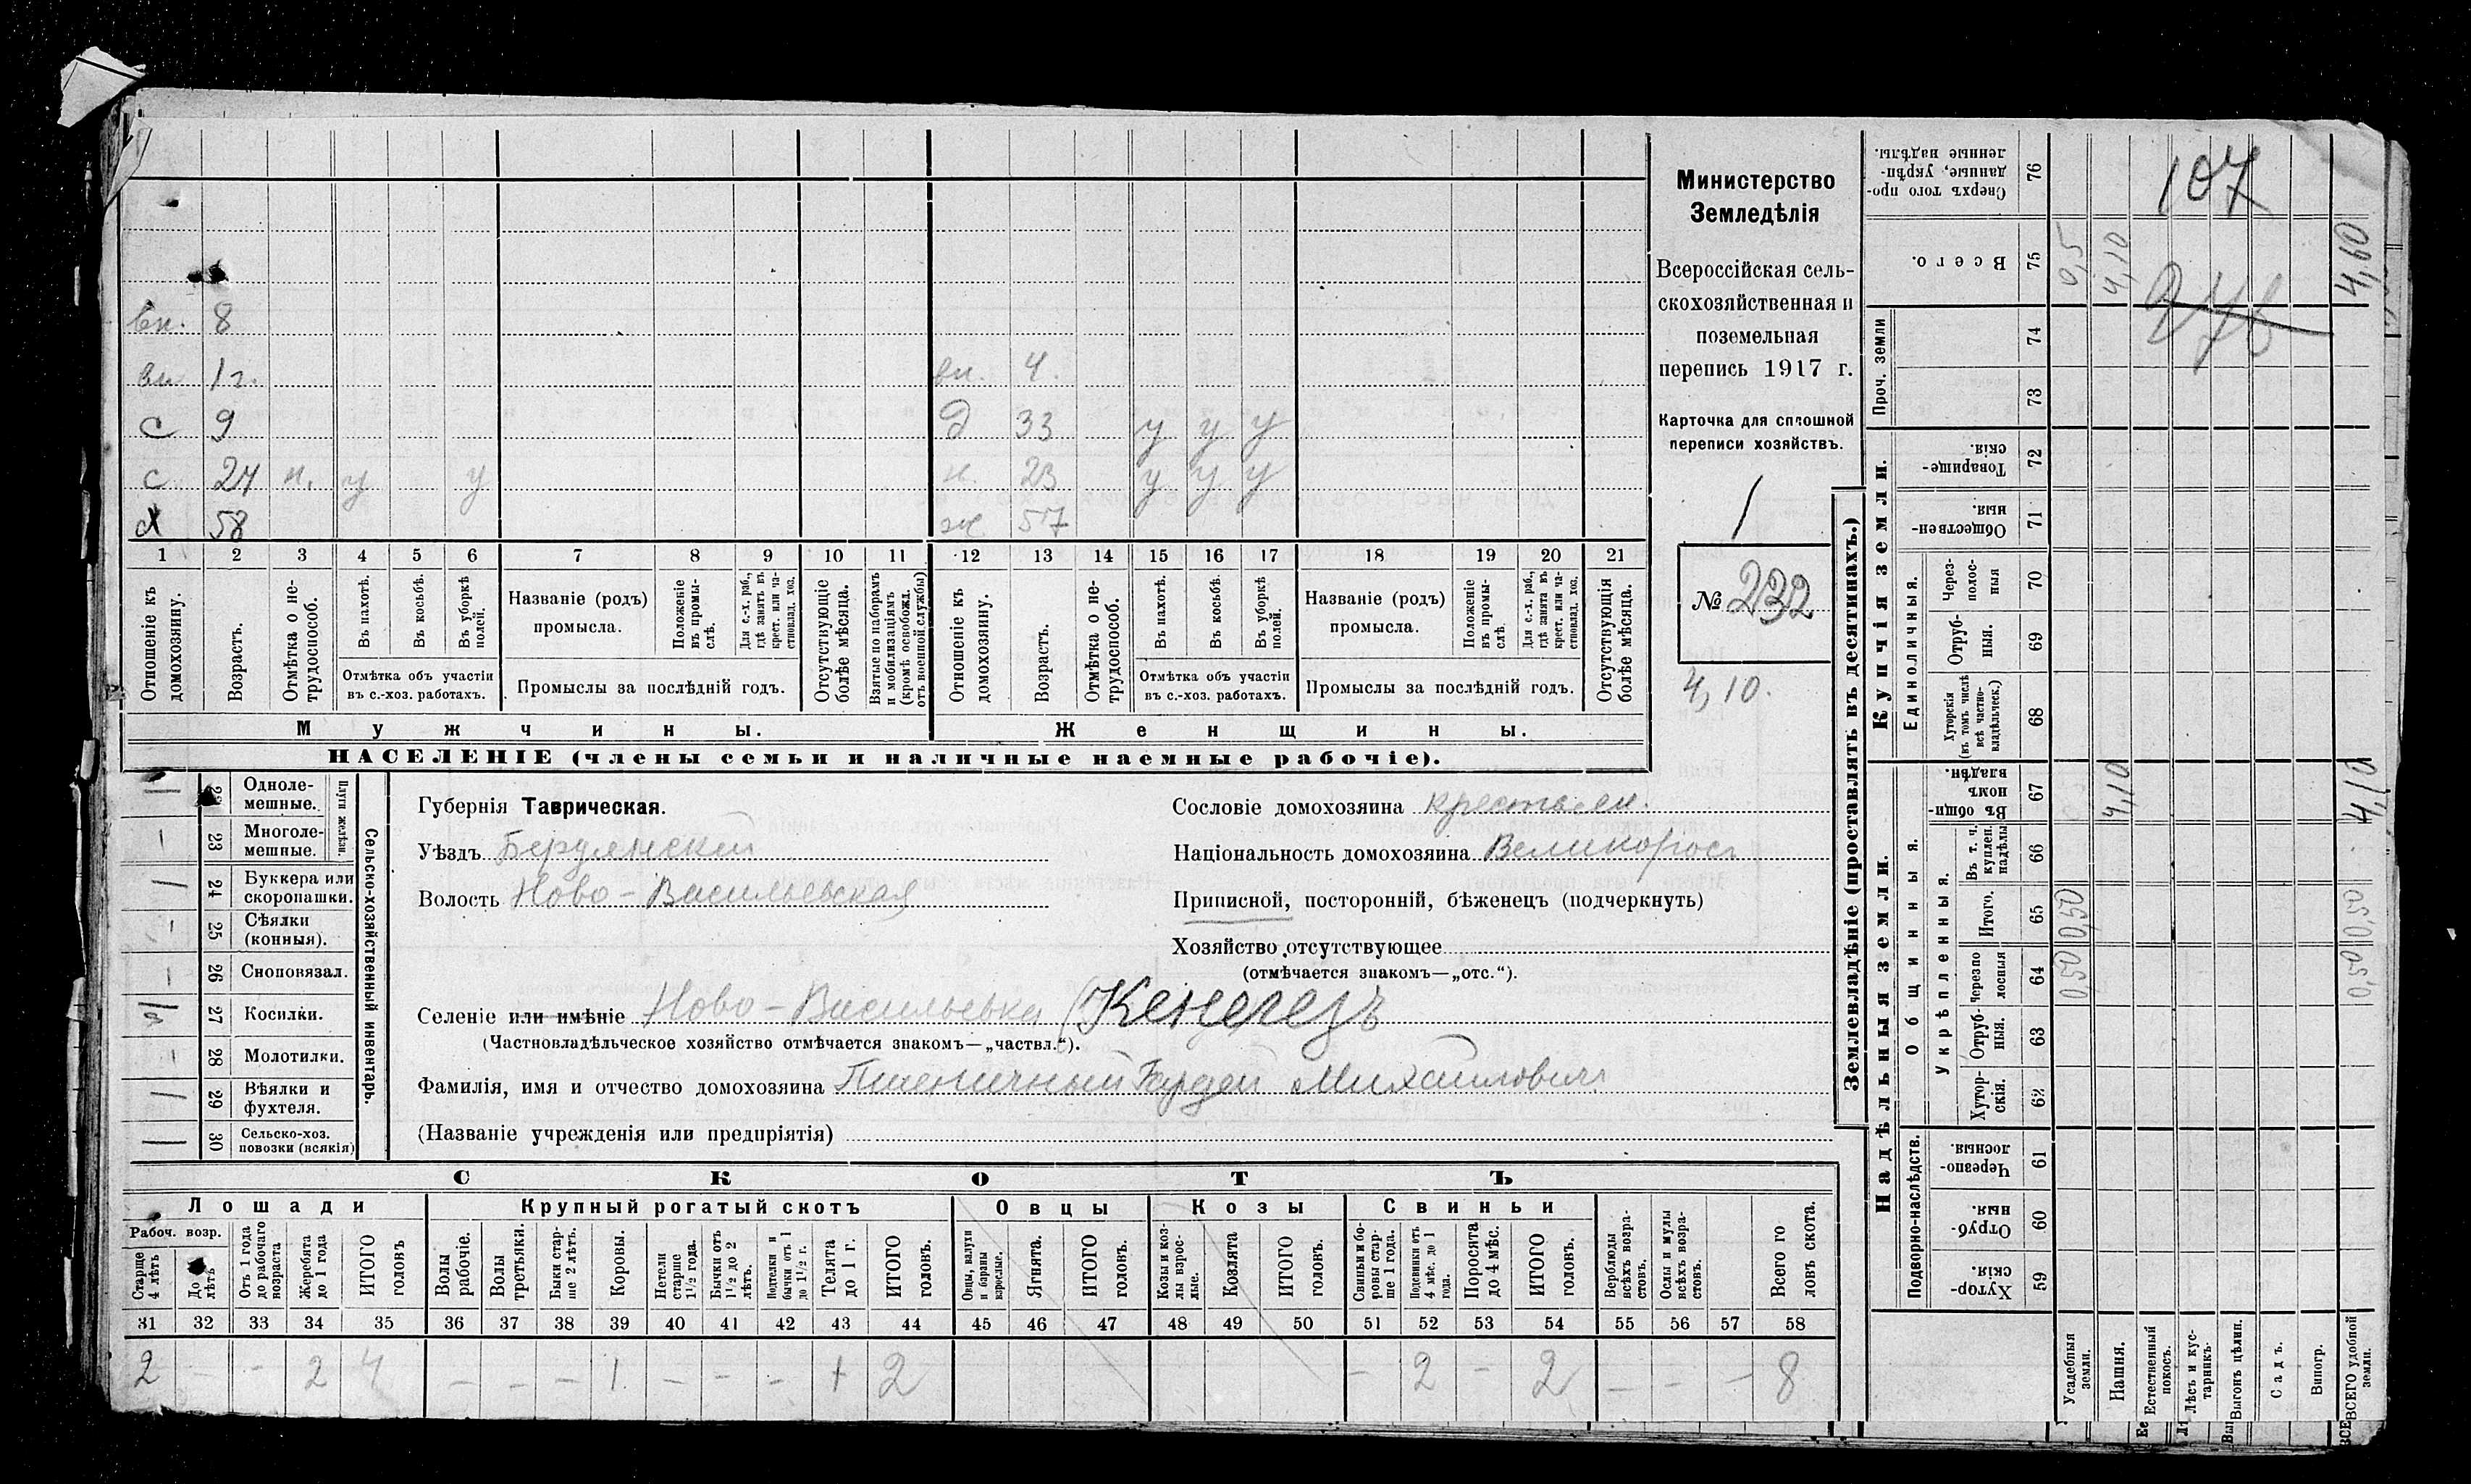 вн. 8
вн 1 г. вн. 4.
с 9 д 33 у у у
с 24 н. у у н. 23 у у у
х 58 ж 57
1 2 3 4 5 6 7 8 9 10 11 12 13 14 15 16 17 18 19 20 21
Отношеніе къ домохозяину.
Возрастъ.
Отмѣтка о не-
трудоспособ.
Въ пахотѣ.
Въ косьбѣ.
Въ уборкѣ полей.
Отмѣтка объ участіи
въ с.-хоз. работахъ.
Названіе (родъ)
промысла.
Положеніе въ промы-
слѣ.
Для с.-х. раб., гдѣ занятъ въ крест. или ча-
стновлад. хоз.
Промыслы за послѣдній годъ.
Отсутствующіе болѣе мѣсяца.
Взятые по наборамъ и мобилизаціямъ (кромѣ освобожд. отъ военной службы)
Отношеніе къ домохозяину.
Возрастъ.
Отмѣтка о не-
трудоспособ.
Въ пахотѣ.
Въ косьбѣ.
Въ уборкѣ полей.
Отмѣтка объ участіи
въ с.-хоз. работахъ.
Названіе (родъ)
промысла.
Положеніе въ промы-
слѣ.
Для с.-х. раб., гдѣ занята въ крест. или ча-
стновлад. хоз.
Промыслы за послѣдній годъ.
Отсутствующія болѣе мѣсяца.
Мужчины. Женщины.
НАСЕЛЕНІЕ (члены семьи и наличные наемные рабочіе).
Министерство
Земледѣлія
Всероссійская сель-
скохозяйственная и
поземельная
перепись 1917 г.
Карточка для сплошной
переписи хозяйствъ.
1
№ 232
4,10.
Плуги желѣзн.
Одноле-
мешные.
23 Многоле-
мешные.
24 Буккера или
скоропашки.
25 Сѣялки
(конныя).
26 Сноповязал.
27 Косилки.
28 Молотилки.
29 Вѣялки и
фухтеля.
30 Сельско-хоз.
повозки (всякія)
Сельско-хозяйственный инвентарь.
Губернія Таврическая.
Уѣздъ Бердянский
Волость Ново-Васильевская
Сословіе домохозяина крестьян.
Національность домохозяина Великорос
Приписной, посторонній, бѣженецъ (подчеркнуть)
Хозяйство отсутствующее
(отмѣчается знакомъ—„отс.“).
Селеніе или имѣніе Ново-Васильевка (Кенегезъ
(Частновладѣльческое хозяйство отмѣчается знакомъ—„частвл.“).
Фамилія, имя и отчество домохозяина Пшеничный Гордей Михайлович
(Названіе учрежденія или предпріятія)
СКОТЪ
Лошади Крупный рогатый скотъ Овцы Козы Свиньи
Рабоч. возр.
Старше 4 лѣтъ
До 4 лѣтъ
Отъ 1 года до рабочаго возраста
Жеребята до 1 года
ИТОГО головъ
Волы рабочіе.
Волы третьяки.
Быки стар-
ше 2 лѣтъ.
Коровы.
Нетели старше 1½ года.
Бычки отъ 1½ до 2 лѣтъ.
Подтелки и бычки отъ 1 до 1½ г.
Телята до 1 г.
ИТОГО головъ.
Овцы, валухи и бараны взрослые.
Ягнята.
ИТОГО головъ.
Козы и коз-
лы взрос-
лые.
Козлята
ИТОГО головъ.
Свиньи и бо-
ровы стар-
ше 1 года.
Подсвинки отъ 4 мѣс. до 1 года.
Поросята до 4 мѣс.
ИТОГО головъ.
Верблюды всѣхъ возра-
стовъ.
Ослы и мулы всѣхъ возра-
стовъ.
Всего го
ловъ скота.
31 32 33 34 35 36 37 38 39 40 41 42 43 44 45 46 47 48 49 50 51 52 53 54 55 56 57 58
2 - - 2 4 - - - 1 - - - 1 2 - 2 - 2 - - - 8
Землевладѣніе (проставлять въ десятинахъ.)
Надѣльныя земли. Купчія земли. Проч. земли
Подворно-наслѣдств.
Общинныя.
Укрѣпленныя.
Единоличныя.
Сверхъ того про-
данные, укрѣп-
ленные надѣлы. 76
Всего. 75 0,5 4,10 4,60
74
73
Товарище-
скія. 72
Обществен-
ныя. 71
Через-
полос-
ныя 70
Отруб-
ныя. 69
Хуторскія (въ томъ числѣ всѣ частно-
владѣльческ.) 68
Въ общин-
номъ владѣн. 67 4,10 4,10
Въ т. ч. куплен. надѣлы 66
Итого. 65 0,50 0,50
Черезпо
лосныя 64 0,50 0,50
Отруб-
ныя. 63
Хутор-
скія. 62
Черезпо-
лосныя. 61
Отруб-
ныя. 60
Хутор-
скія. 59
Усадебныя земли.
Пашня.
Естественный покосъ.
Лѣсъ и кус-
тарникъ.
Выгонъ цѣлин.
Садъ.
Виногр.
ВСЕГО удобной земли.
107
276